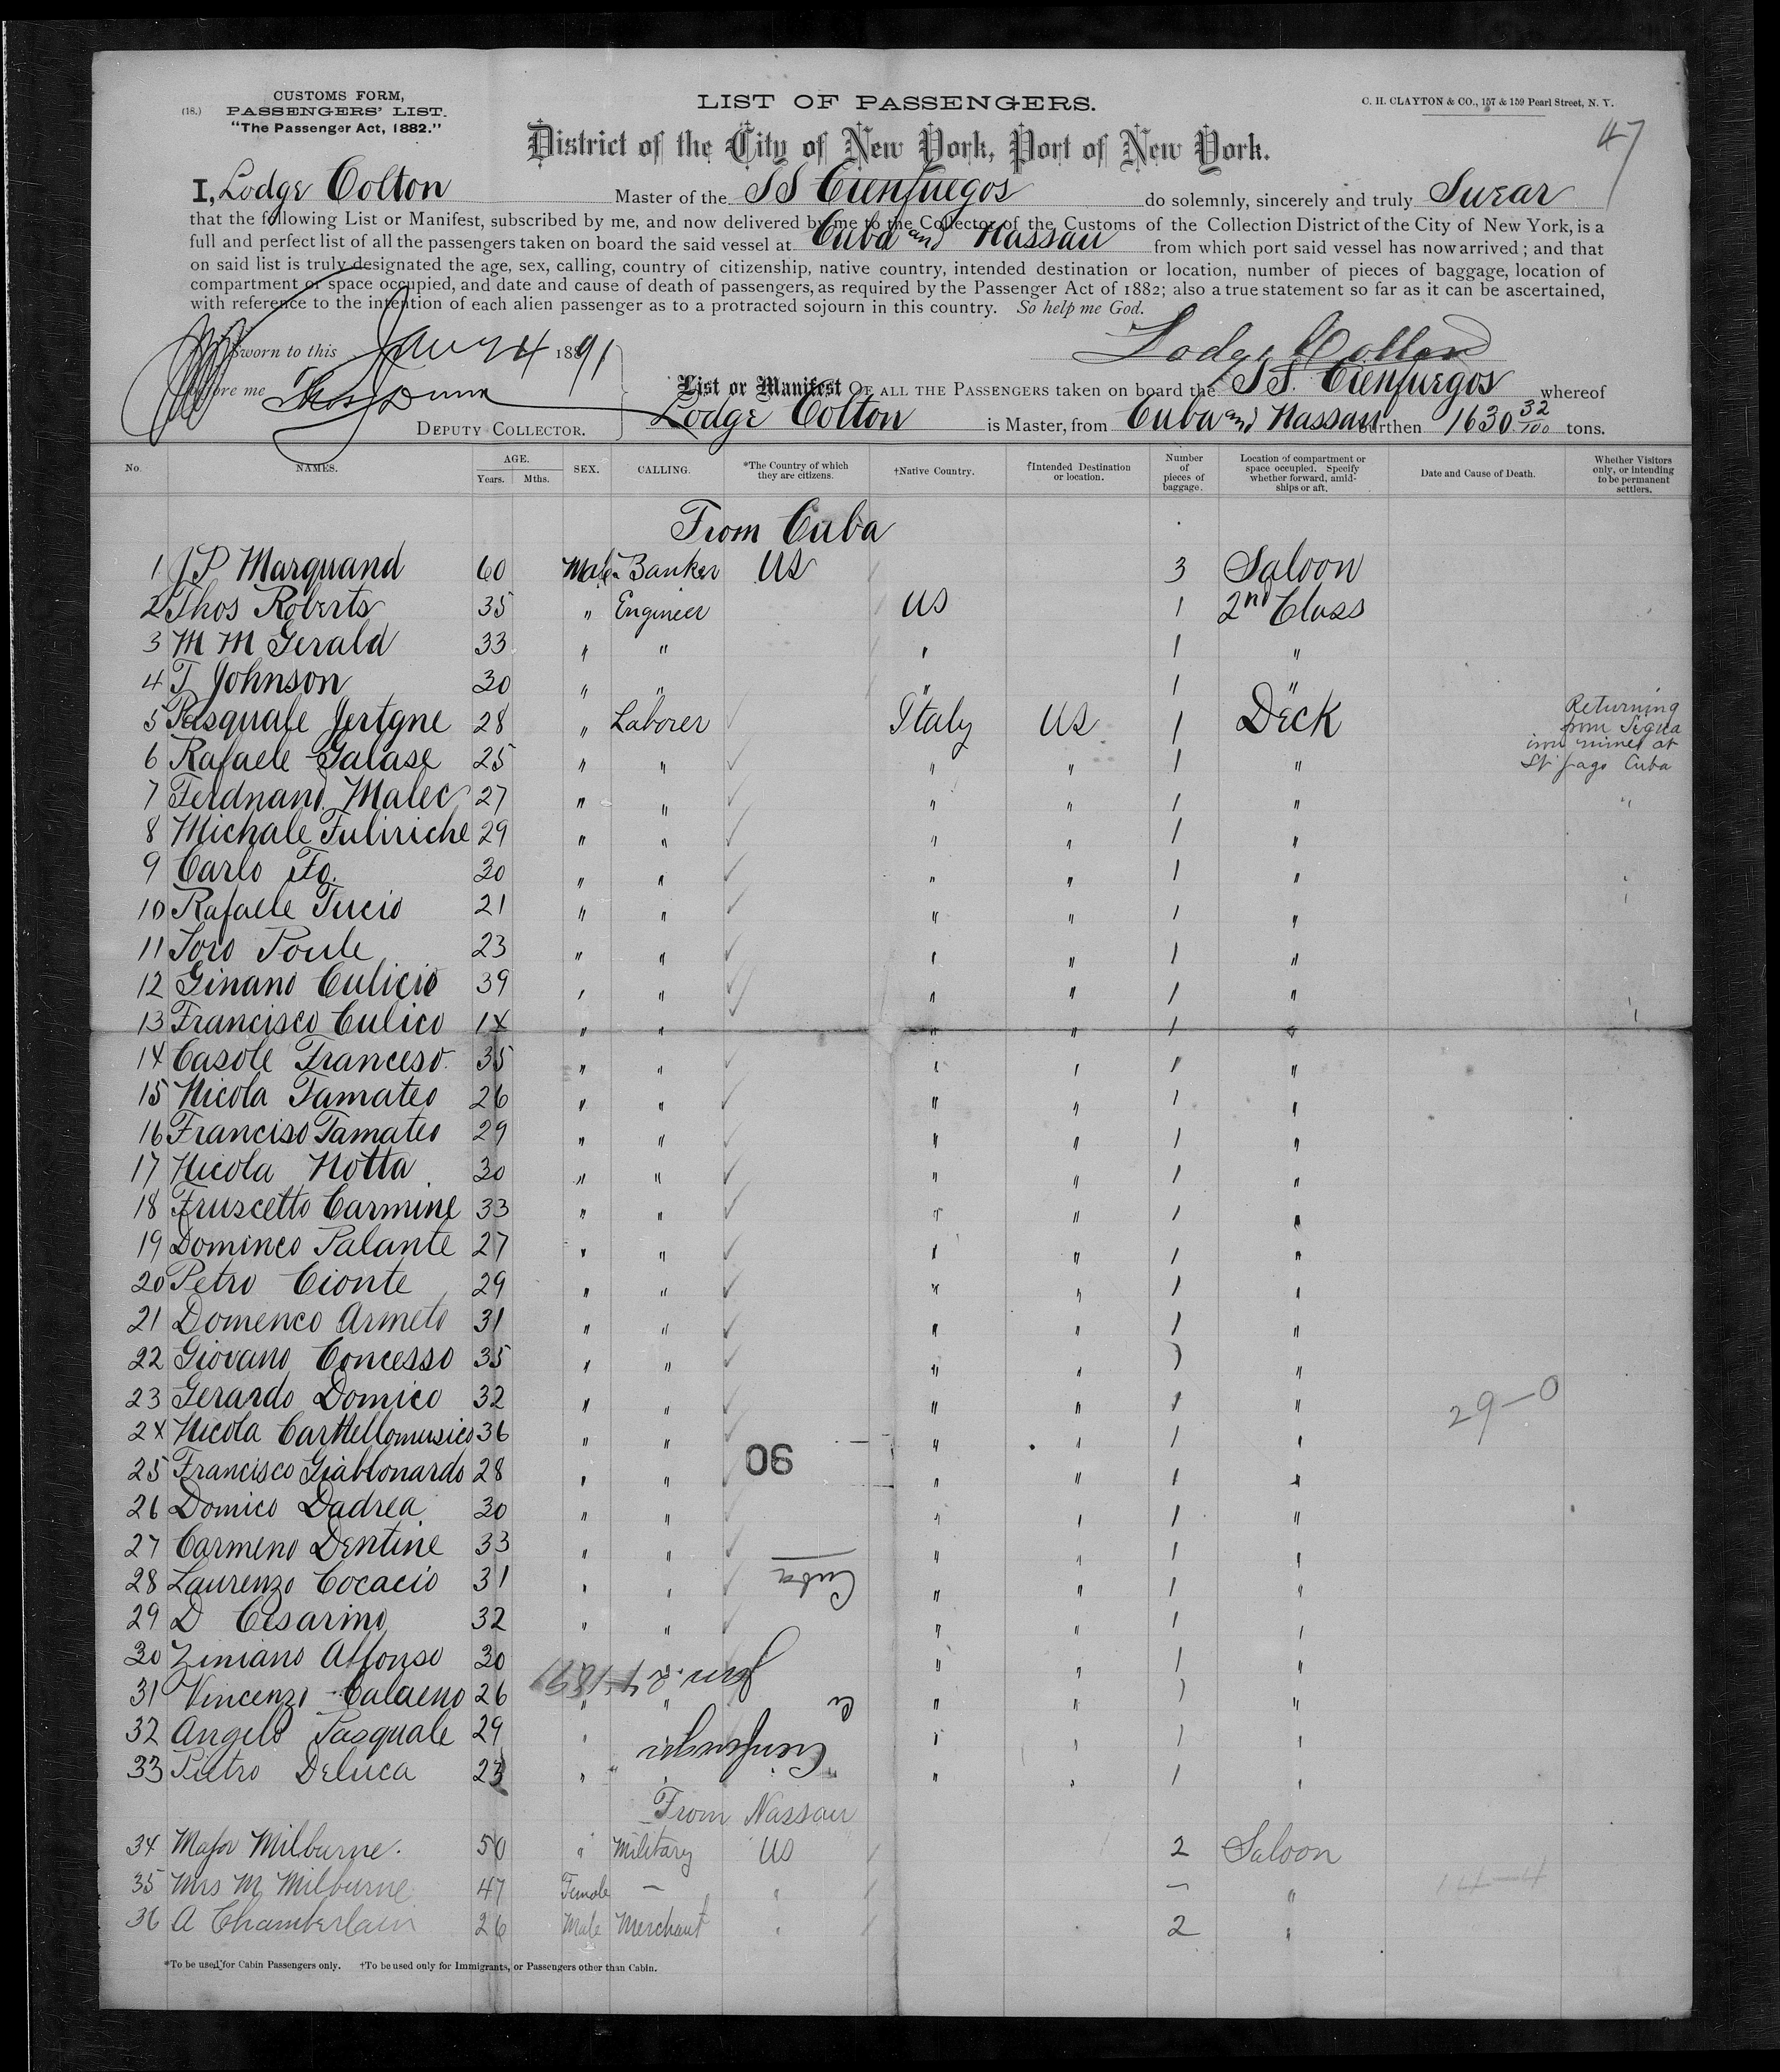 CUSTOMS FORM,
(18.) PASSENGERS' LIST.
"The Passenger Act, 1882."
LIST OF PASSENGERS.
C. H. CLAYTON & CO., 157 & 159 Pearl Street, N. Y.
47
District of the City of New York, Port of New York.
I, Lodge Colton Master of the SS Cienfuegos do solemnly, sincerely and truly Swear
that the following List or Manifest, subscribed by me, and now delivered by me to the Collector of the Customs of the Collection District of the City of New York, is a
full and perfect list of all the passengers taken on board the said vessel at Cuba and Nassau from which port said vessel has now arrived; and that
on said list is truly designated the age, sex, calling, country of citizenship, native country, intended destination or location, number of pieces of baggage, location of
compartment or space occupied, and date and cause of death of passengers, as required by the Passenger Act of 1882; also a true statement so far as it can be ascertained,
with reference to the intention of each alien passenger as to a protracted sojourn in this country. So help me God.
Sworn to this Jany 24 1891
Lodge Colton
before me Thos J Dunn
DEPUTY COLLECTOR.
List or Manifest OF ALL THE PASSENGERS taken on board the SS. Cienfuegos whereof
Lodge Colton is Master, from Cuba and Nassau burthen 1630 32/100 tons.
No. NAMES. AGE. Years. Mths. SEX. CALLING. *The Country of which they are citizens. †Native Country. †Intended Destination or location. Number of pieces of baggage. Location of compartment or space occupied. Specify whether forward, amidships or aft. Date and Cause of Death. Whether Visitors only, or intending to be permanent settlers.
From Cuba
1 J P Marquand 60 Male Banker US 3 Saloon
2 Thos Roberts 35 " Engineer US 1 2nd Class
3 M M Gerald 33 " " " 1 "
4 T Johnson 30 " " " 1 "
5 Pasquale Jertgne 28 " Laborer Italy US 1 Deck Returning from Sigua iron mines at St Jago Cuba
6 Rafaele Galase 25 " " " " 1 "
7 Ferdnand Malec 27 " " " " 1 " "
8 Michale Fuliriche 29 " " " " 1 "
9 Carlo Fo. 30 " " " " 1 "
10 Rafaele Tucio 21 " " " " 1 "
11 Toro Poule 23 " " " " 1 "
12 Ginano Culicio 39 " " " " 1 "
13 Francisco Culico 14 " " " " 1 "
14 Casole Franceso 35 " " " " 1 "
15 Nicola Tamateo 26 " " " " 1 "
16 Franciso Tamateo 29 " " " " 1 "
17 Nicola Notta 30 " " " " 1 "
18 Fruscetto Carmine 33 " " " " 1 "
19 Dominco Palante 27 " " " " 1 "
20 Petro Cionte 29 " " " " 1 "
21 Domenco Armeto 31 " " " " 1 "
22 Giovano Concesso 35 " " " " 1 "
23 Gerardo Domico 32 " " " " 1 " 29-0
24 Nicola Carthellomusico 36 " " " " 1 "
25 Francisco Giablonardo 28 " " 90 " " 1 "
26 Domico Dadrea 30 " " " " 1 "
27 Carmeno Dentine 33 " " " " 1 "
28 Laurenzo Cocacio 31 " " Cuba " " 1 "
29 D Cesarino 32 " " " " 1 "
30 Ziniano Alfonso 30 " " " 1 "
Jan. 24 1891
31 Vincenzo Calaeno 26 " " " " 1 "
32 Angelo Pasquale 29 " " " 1 "
Cienfuegos
33 Pietro Deluca 23 " " " " 1 "
From Nassau
34 Major Milburne. 50 " Military US 2 Saloon
35 Mrs M Milburne 47 Female — " — "
36 A Chamberlain 26 Male Merchant " 2 "
*To be used for Cabin Passengers only. †To be used only for Immigrants, or Passengers other than Cabin.